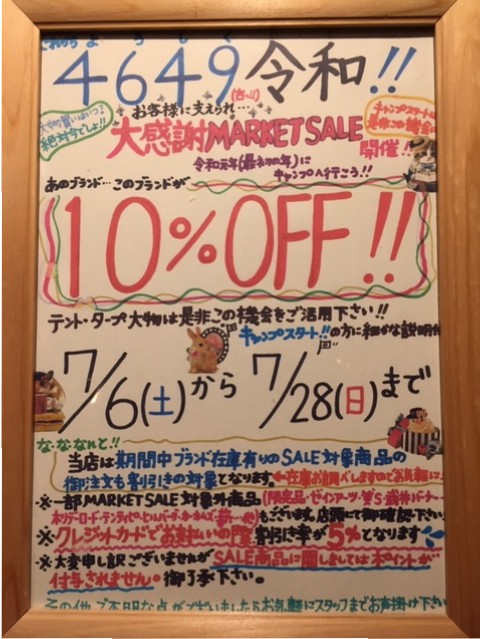 これからよろしく
4649(古〜い)令和!!
大物買いはいつ?
絶対今でしょ!!
お客様に支えられ…
大感謝MARKET SALE
キャンプスタートは
是非この機会に
開催!!
令和元年(最初の年)に
キャンプへ行こう!!
あのブランド…このブランドが
10%OFF!!
テント・タープ大物は是非この機会をご活用下さい!!
キャンプスタート!!の方に細かな説明付
7/6(土)から7/28(日)まで
な・ななんと!!
当店は期間中ブランド在庫有りのSALE対象商品の
御注文も割引きの対象となります。
←在庫お調べしますのでお気軽に
※一部MARKET SALE対象外商品(限定品・ゼインアーツ・
もございます。店頭にて御確認下さい
※クレジットカードでお支払いの際割引き率が5%となります
※大変申し訳ございませんがSALE商品に関しましてはポイントが
付与されません。御了承下さい。
その他ご不明な点がございましたらお気軽にスタッフまでお声掛け下さい